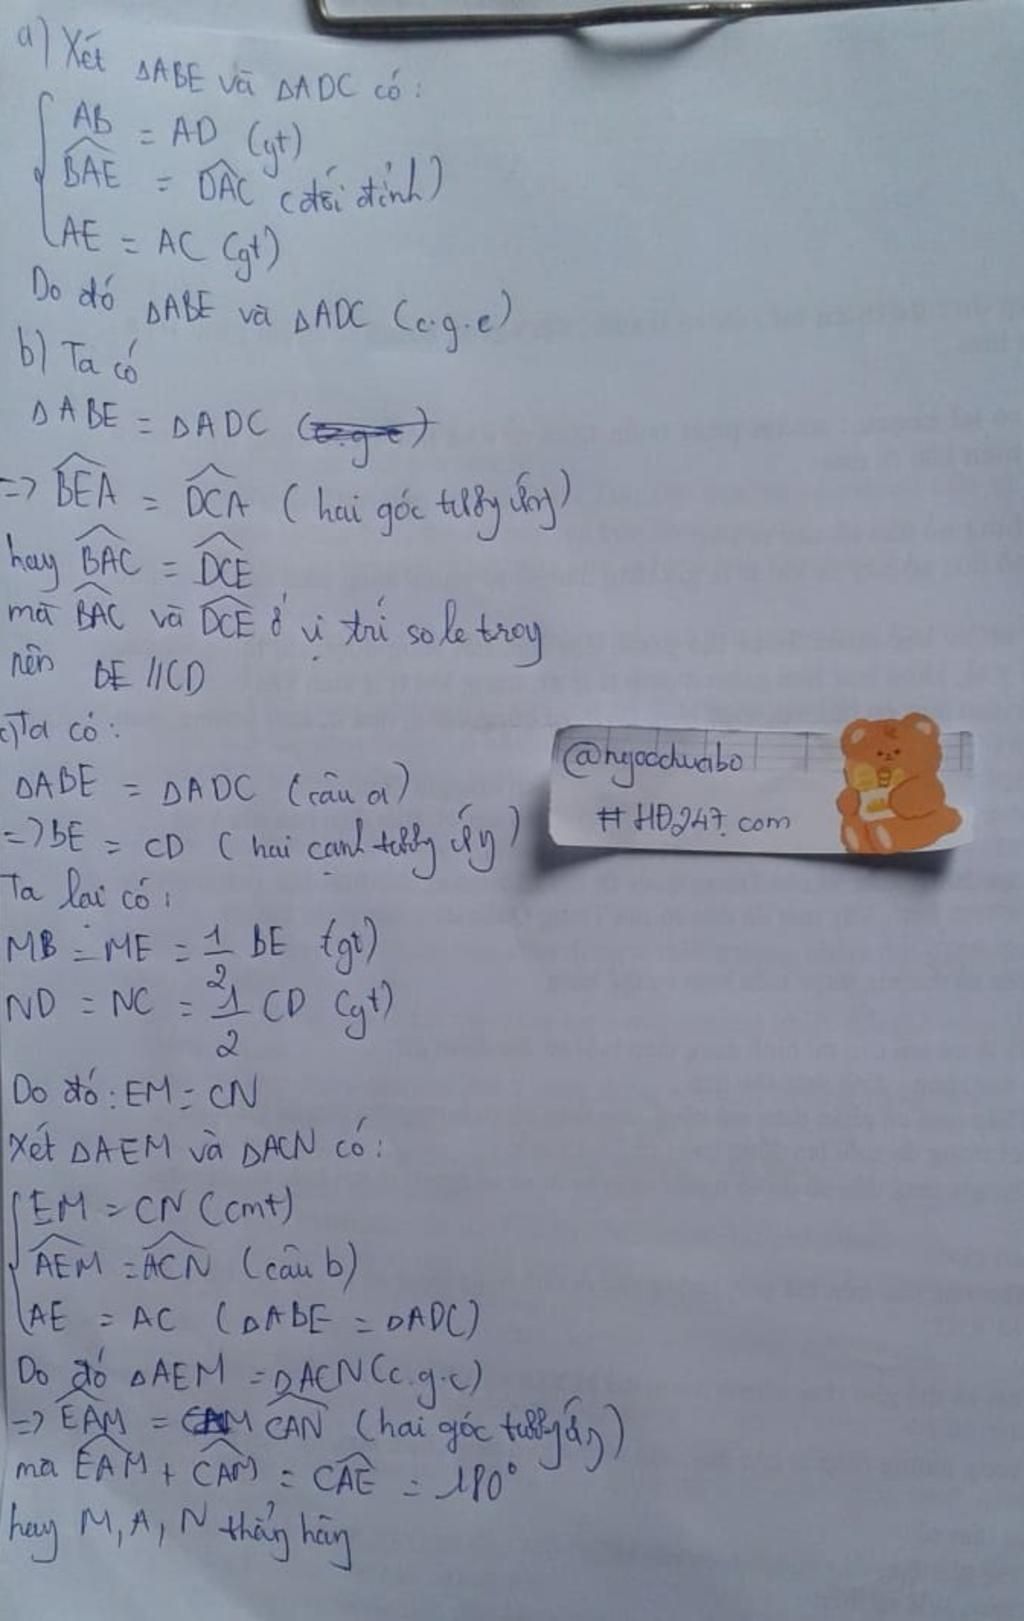 a) Xét ΔABE và ΔADC có:
AB = AD (gt)
BAE = DAC (đối đỉnh)
AE = AC (gt)
Do đó ΔABE và ΔADC (c.g.c)
b) Ta có
ΔABE = ΔADC (c.g.c)
=> BEA = DCA (hai góc tương ứng)
hay BAC = DCE
mà BAC và DCE ở vị trí so le trong
nên BE // CD
c) Ta có:
ΔABE = ΔADC (câu a)
=> BE = CD (hai cạnh tương ứng)
@ngocchuibo
# HĐ247.com
Ta lại có:
MB = ME = 1/2 BE (gt)
ND = NC = 1/2 CD (gt)
Do đó: EM = CN
Xét ΔAEM và ΔACN có:
EM = CN (cmt)
AEM = ACN (câu b)
AE = AC (ΔABE = ΔADC)
Do đó ΔAEM = ΔACN (c.g.c)
=> EAM = CAN (hai góc tương ứng)
mà EAM + CAM = CAE = 180°
hay M, A, N thẳng hàng